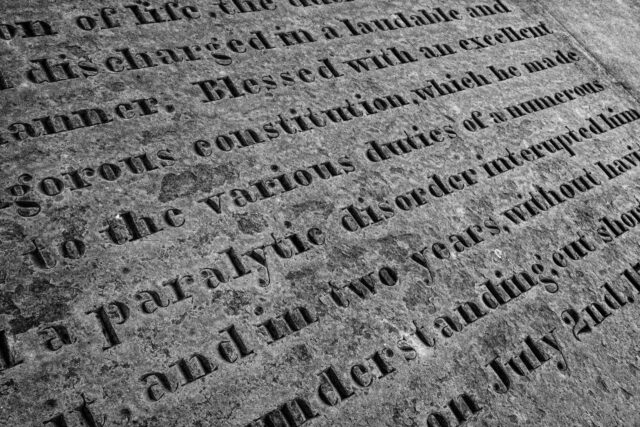 on of life, the du
discharged in a laudable and
anner. Blessed with an excellent
gorous constitution, which he made
to the various duties of a numerous
a paralytic disorder interupted him
it, and in two years, without havi
understanding, cut sho
on July 2nd, 1